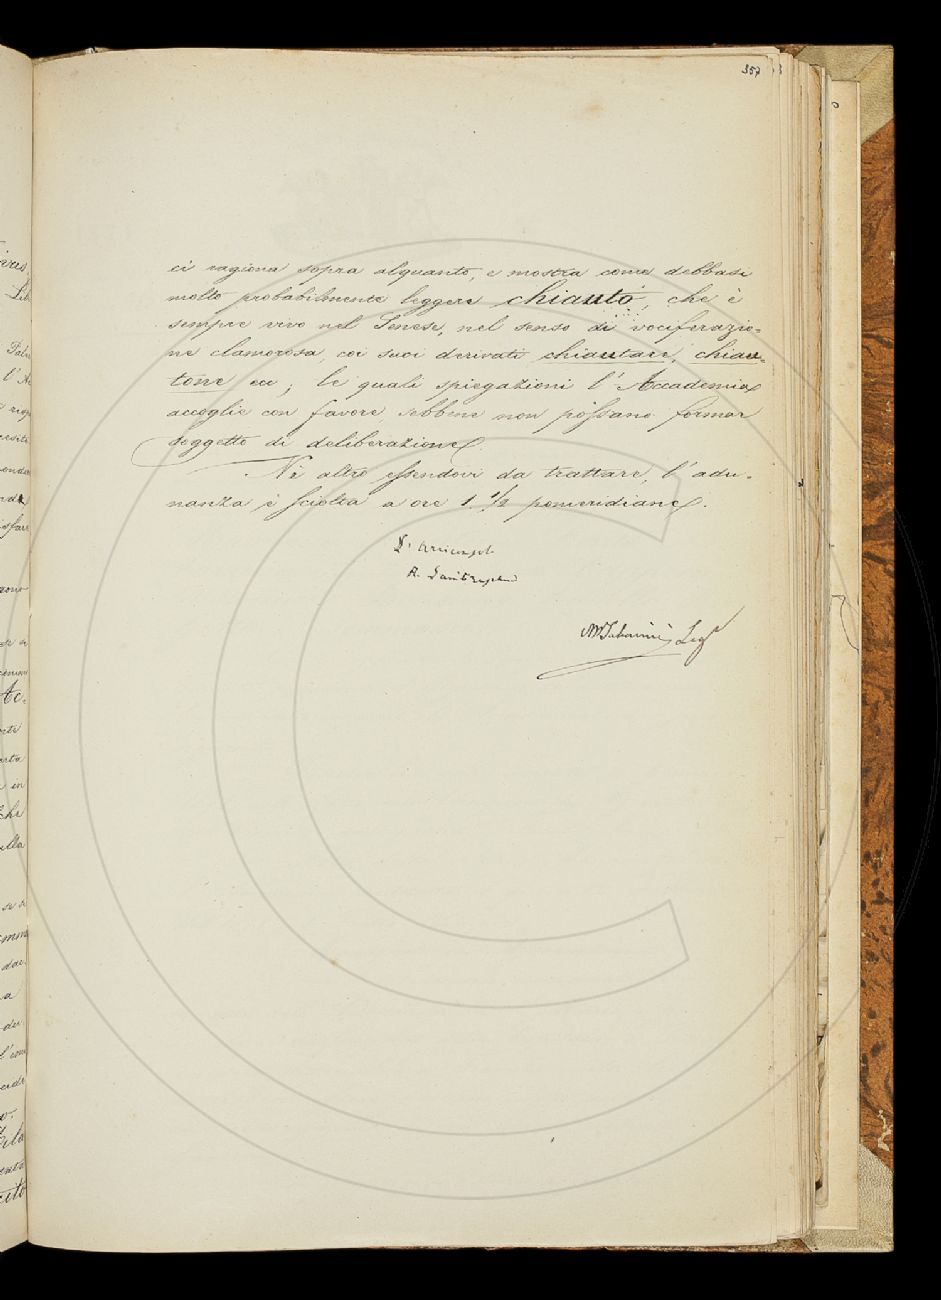 357
ci ragiona sopra alquanto, e mostra come debbasi
molto probabilmente leggere chiautò, che è
sempre vivo nel Senese, nel senso di vociferazio-
ne clamorosa, coi suoi derivati chiautare, chiau-
tone ecc; le quali spiegazioni l'Accademia
accoglie con favore, sebbene non possano formar
soggetto di deliberazione.
Nè altro essendovi da trattare, l'adu-
nanza è sciolta a ore 1 1/2 pomeridiane.
A.
MTabarrini Seg°